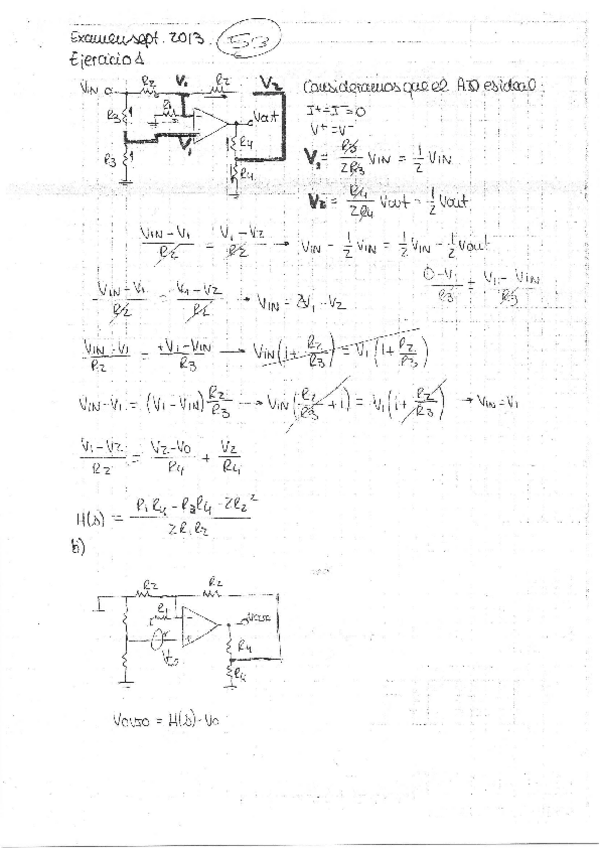 Examen sept. 2013. 53
Ejercicio 1
VIN R2 V1 R2 V2
R1 Vout
R3 V1 R4
R3 R4
Consideramos que el AO es ideal:
I+=I-=0
V+=V-
V1 = R3/2R3 VIN = 1/2 VIN
V2 = R4/2R4 Vout = 1/2 Vout
VIN-V1/R2 = V1-V2/R2 → VIN - 1/2 VIN = 1/2 VIN - 1/2 Vout
0-V1/R3 = V1-VIN/R3
VIN-V1/R2 = V1-V2/R2 → VIN = 2V1-V2
VIN-V1/R2 = +V1-VIN/R3 → VIN(1+R2/R3) = V1(1+R2/R3)
VIN-V1 = (V1-VIN)R2/R3 → VIN(R2/R3+1) = V1(1+R2/R3) → VIN=V1
V1-V2/R2 = V2-V0/R4 + V2/R4
H(s) = R1R4-R2R4-2R2²/2R1R2
b)
R2 R2
R1
R4
R4